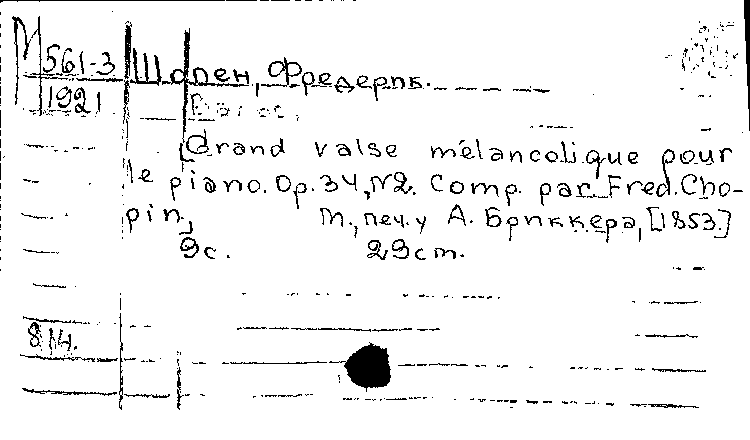 М 561-3 Шопен, Фредерик.
1921
[Grand valse mélancolique pour
le piano. Op. 34, N2. Comp. par Fred. Cho-
pin, М., печ. у А. Бриккера, [1853.]
9с. 29cm.
8 М.